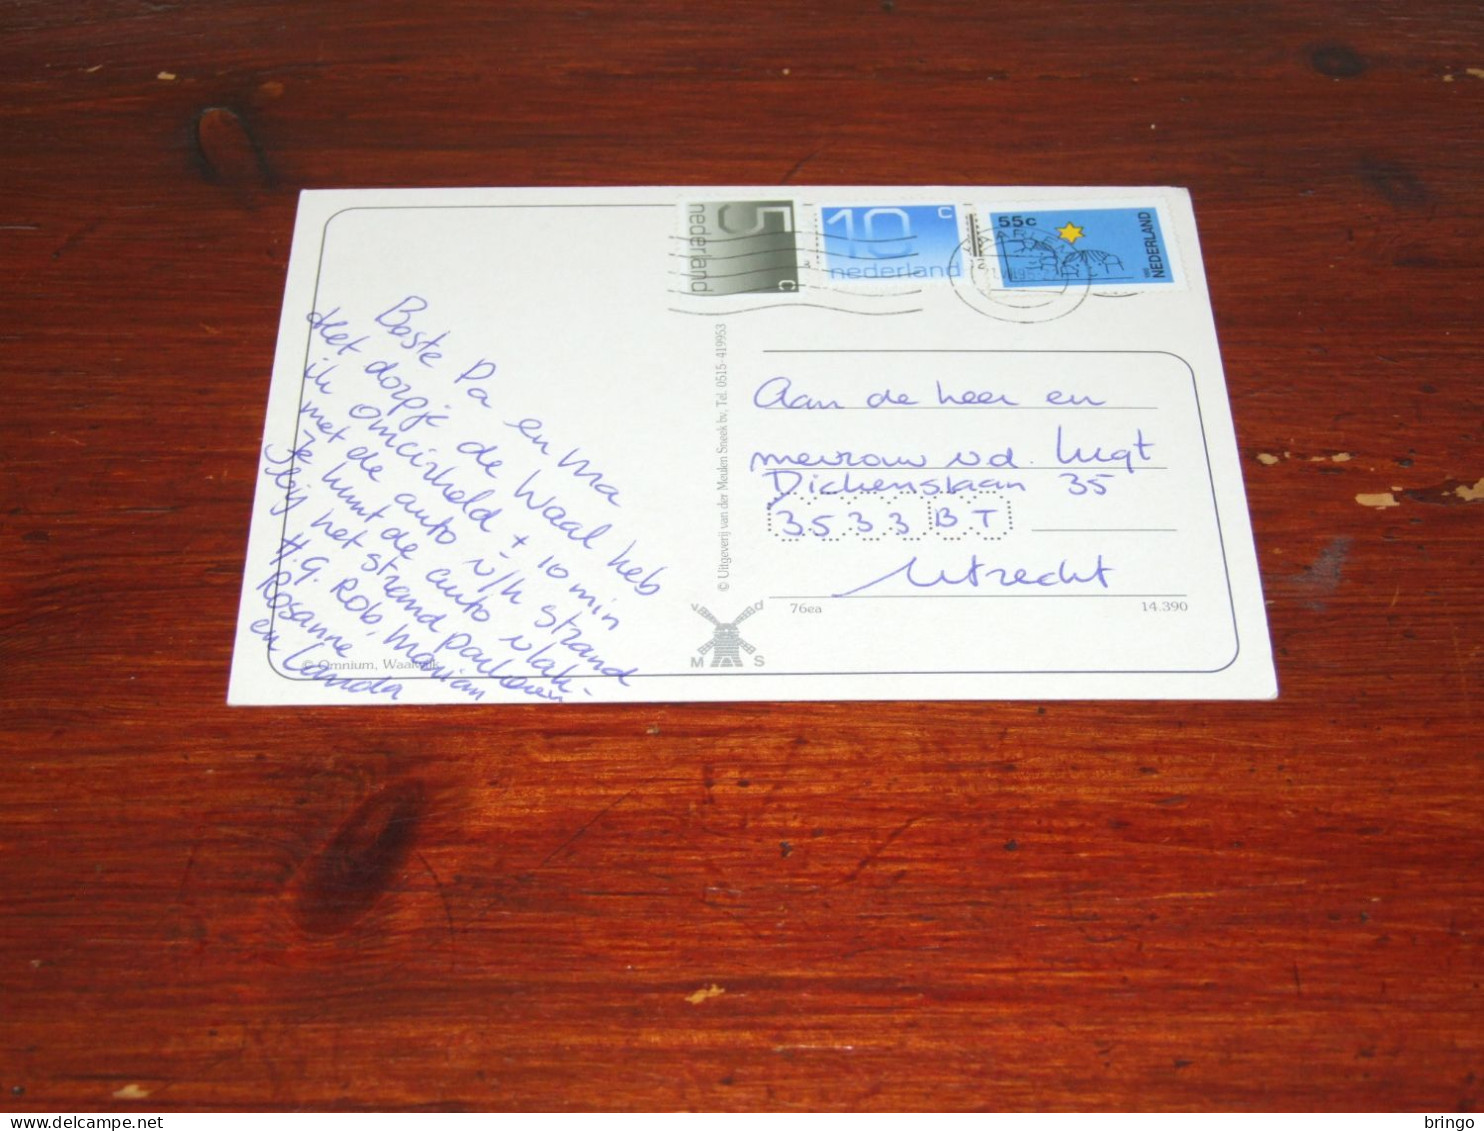 5
c
nederland
10
c
nederland
55c
NEDERLAND
Beste Pa en Ma
Het dorpje de Waal heb
ik omcirkeld + 10 min
met de auto v/h strand
Je kunt de auto vlak-
bij het strand parkeren
H.G. Rob, Marian
Rosanne
en Landa
© Omnium, Waalwijk
© Uitgeverij van der Meulen Sneek bv, Tel. 0515-419953
v d
M S
Aan de heer en
mevrouw v.d. Lugt
Dickenslaan 35
3533 BT
Utrecht
76ea
14.390
bringo